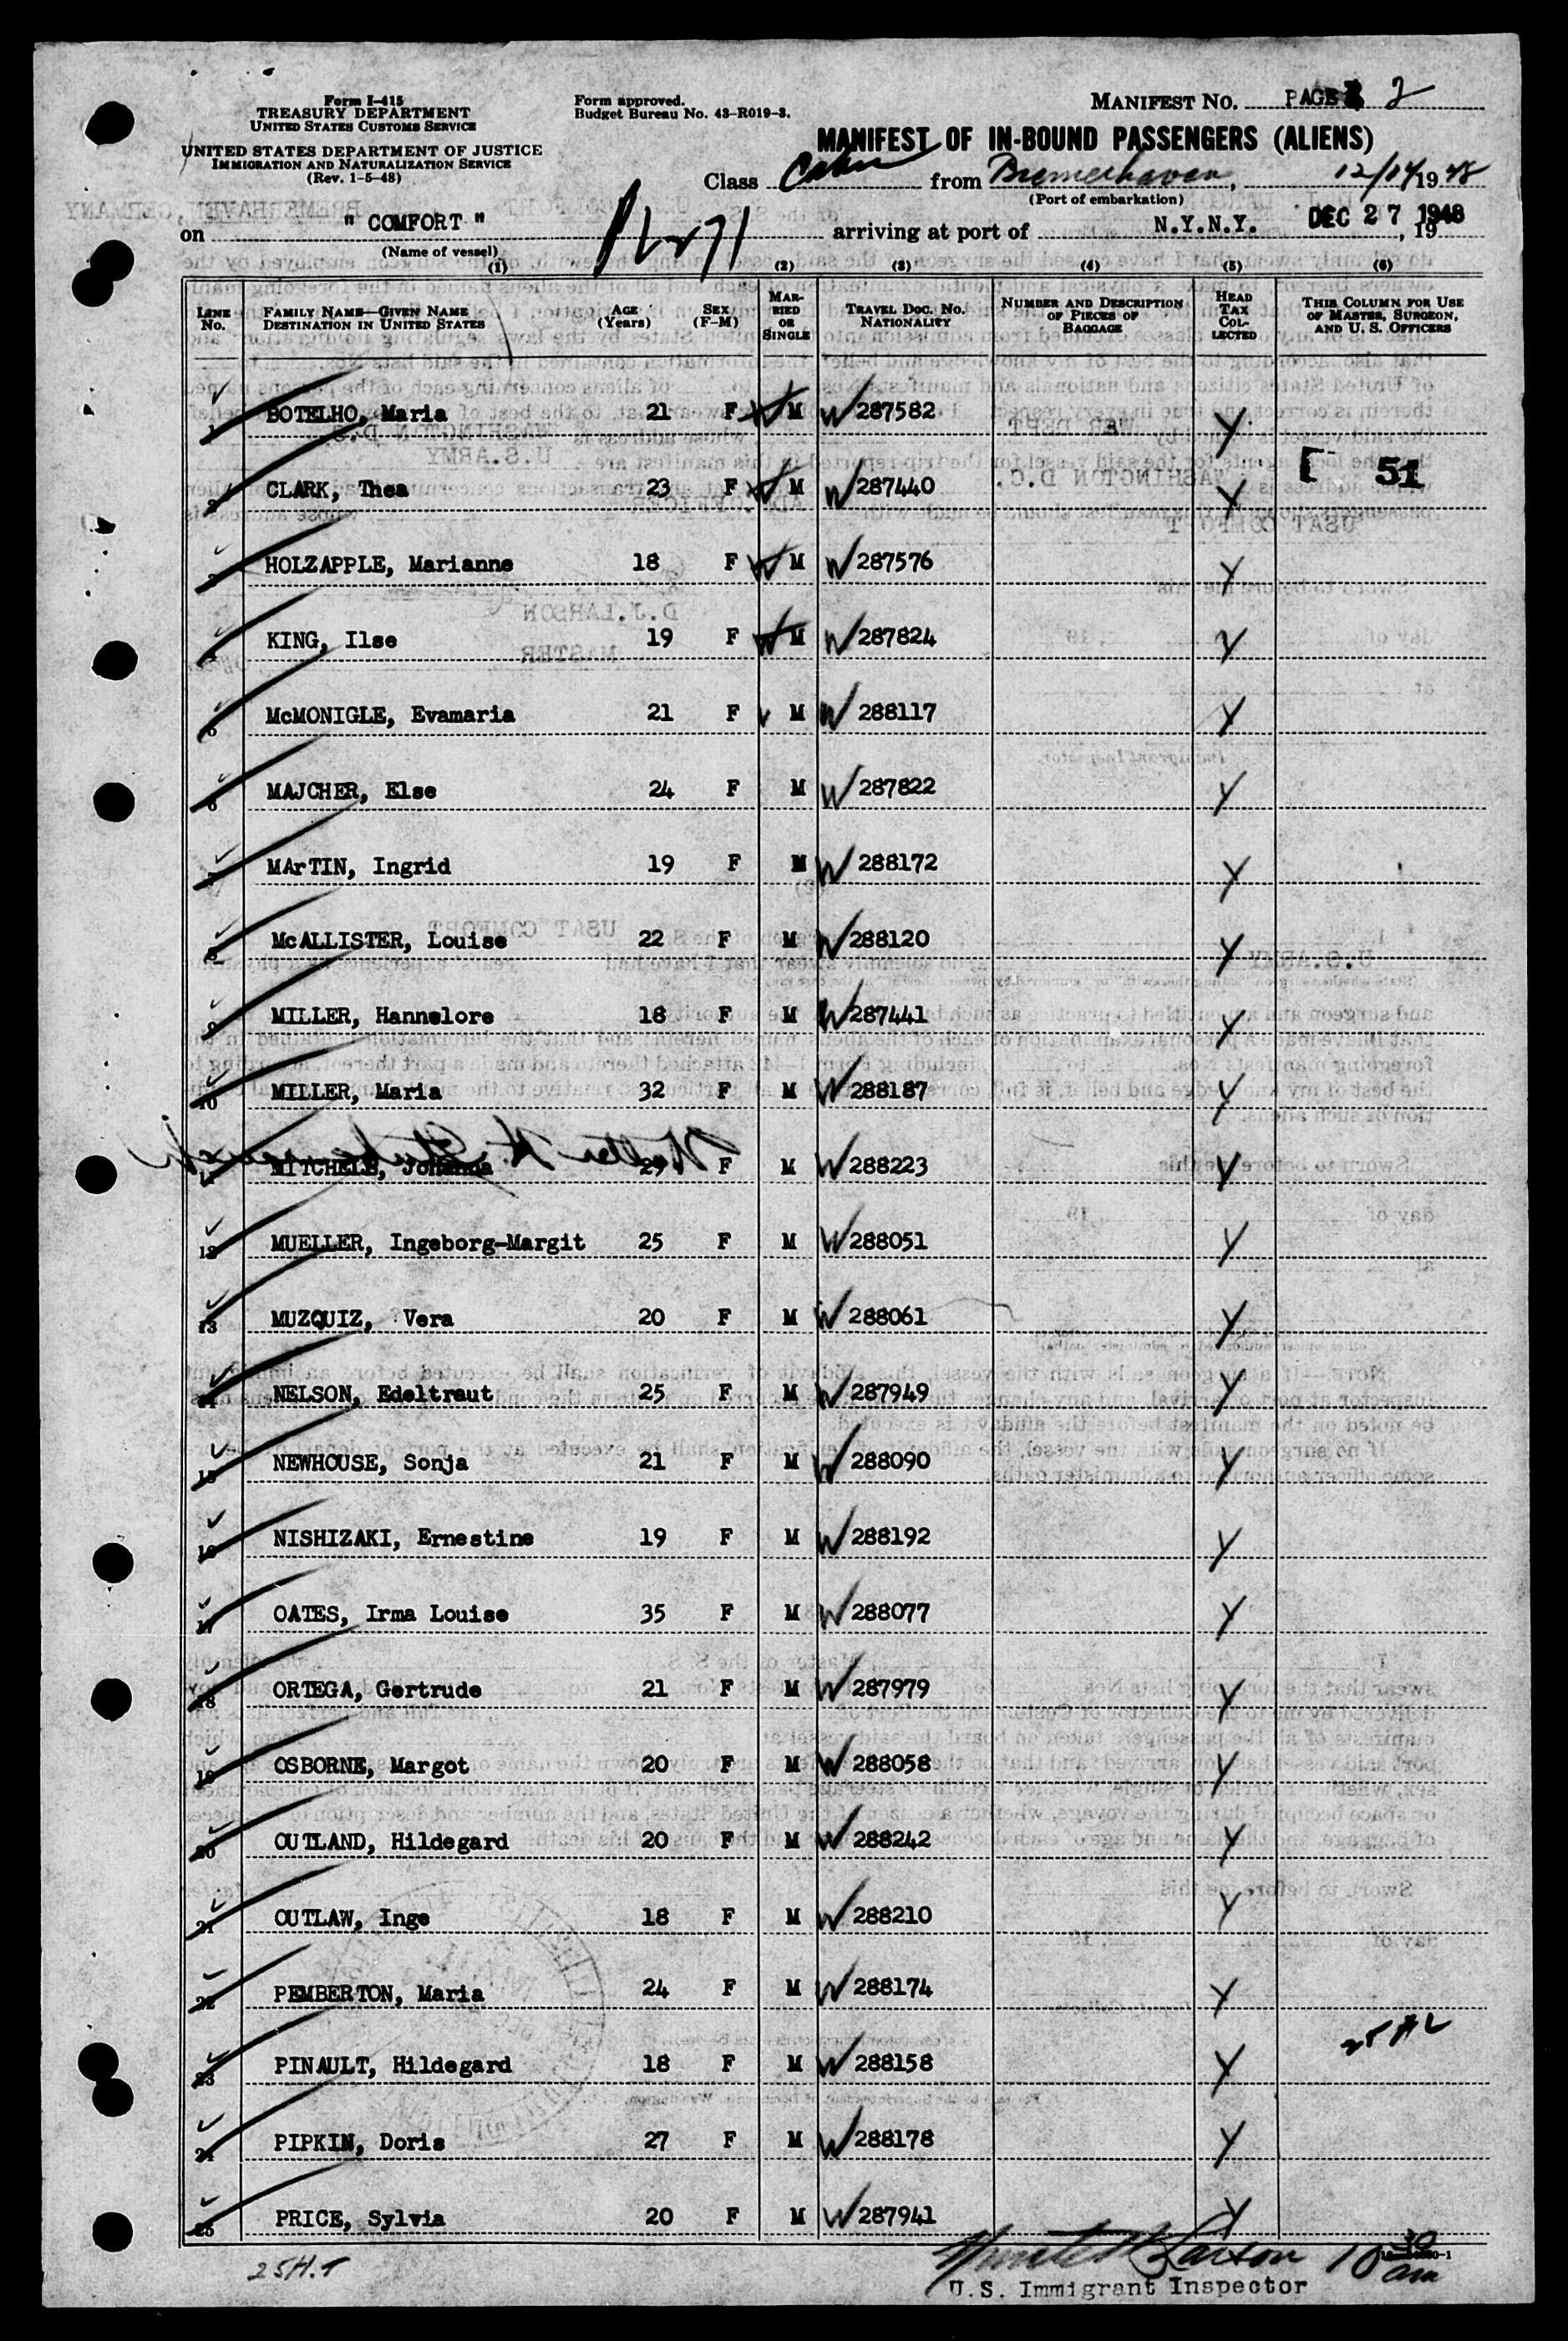 Form I-415
TREASURY DEPARTMENT
UNITED STATES CUSTOMS SERVICE
UNITED STATES DEPARTMENT OF JUSTICE
IMMIGRATION AND NATURALIZATION SERVICE
(Rev. 1-5-48)
Form approved.
Budget Bureau No. 43-R019-3.
MANIFEST No. PAGE 2
MANIFEST OF IN-BOUND PASSENGERS (ALIENS)
Class Cabin from Bremerhaven, 12/14 1948
(Port of embarkation)
on " COMFORT " arriving at port of N.Y.N.Y. DEC 27 1948, 19
(Name of vessel)
(1) (2) (3) (4) (5) (6)
LINE No. FAMILY NAME—GIVEN NAME DESTINATION IN UNITED STATES AGE (Years) SEX (F-M) MARRIED OR SINGLE TRAVEL DOC. No. NATIONALITY NUMBER AND DESCRIPTION OF PIECES OF BAGGAGE HEAD TAX COLLECTED THIS COLUMN FOR USE OF MASTER, SURGEON, AND U. S. OFFICERS
1 BOTELHO, Maria 21 F M W 287582 Y
51
2 CLARK, Thea 23 F M W 287440 Y
3 HOLZAPPLE, Marianne 18 F M W 287576 Y
4 KING, Ilse 19 F M W 287824 Y
5 McMONIGLE, Evamaria 21 F M W 288117 Y
6 MAJCHER, Else 24 F M W 287822 Y
7 MArTIN, Ingrid 19 F M W 288172 Y
8 McALLISTER, Louise 22 F M W 288120 Y
9 MILLER, Hannelore 18 F M W 287441 Y
10 MILLER, Maria 32 F M W 288187 Y
11 MITCHELL, Johanna 29 F M W 288223 Y
12 MUELLER, Ingeborg-Margit 25 F M W 288051 Y
13 MUZQUIZ, Vera 20 F M W 288061 Y
14 NELSON, Edeltraut 25 F M W 287949 Y
15 NEWHOUSE, Sonja 21 F M W 288090 Y
16 NISHIZAKI, Ernestine 19 F M W 288192 Y
17 OATES, Irma Louise 35 F M W 288077 Y
18 ORTEGA, Gertrude 21 F M W 287979 Y
19 OSBORNE, Margot 20 F M W 288058 Y
20 OUTLAND, Hildegard 20 F M W 288242 Y
21 OUTLAW, Inge 18 F M W 288210 Y
22 PEMBERTON, Maria 24 F M W 288174 Y
23 PINAULT, Hildegard 18 F M W 288158 Y
24 PIPKIN, Doris 27 F M W 288178 Y
25 PRICE, Sylvia 20 F M W 287941 Y
25 H.T
Larson 10 30 am
U.S. Immigrant Inspector